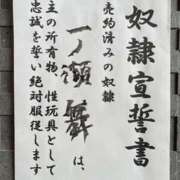 奴隷宣誓書
売約済みの奴隷
一ノ瀬舞は、
主の所有物、性玩具として
忠誠を誓い絶対服従します